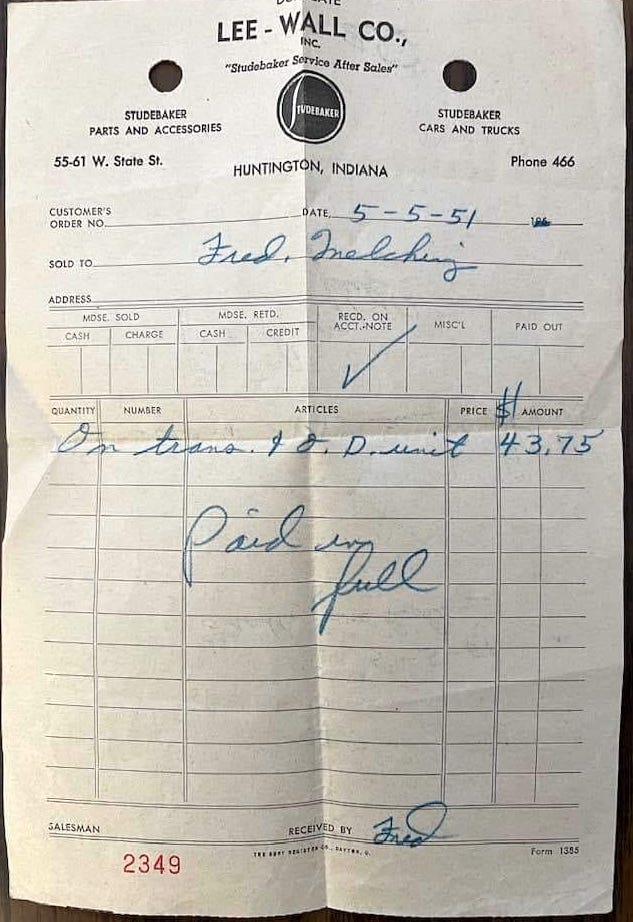 DUPLICATE
LEE - WALL CO.,
INC.
"Studebaker Service After Sales"
STUDEBAKER
STUDEBAKER
PARTS AND ACCESSORIES
STUDEBAKER
CARS AND TRUCKS
55-61 W. State St.
HUNTINGTON, INDIANA
Phone 466
CUSTOMER'S
ORDER NO.
DATE, 5-5-51
SOLD TO Fred. Melching
ADDRESS
MDSE. SOLD MDSE. RETD. RECD. ON ACCT.-NOTE MISC'L PAID OUT
CASH CHARGE CASH CREDIT
QUANTITY NUMBER ARTICLES PRICE $ AMOUNT
On trans. & O. D. unit 43.75
Paid in
full
SALESMAN RECEIVED BY Fred
2349 Form 1385